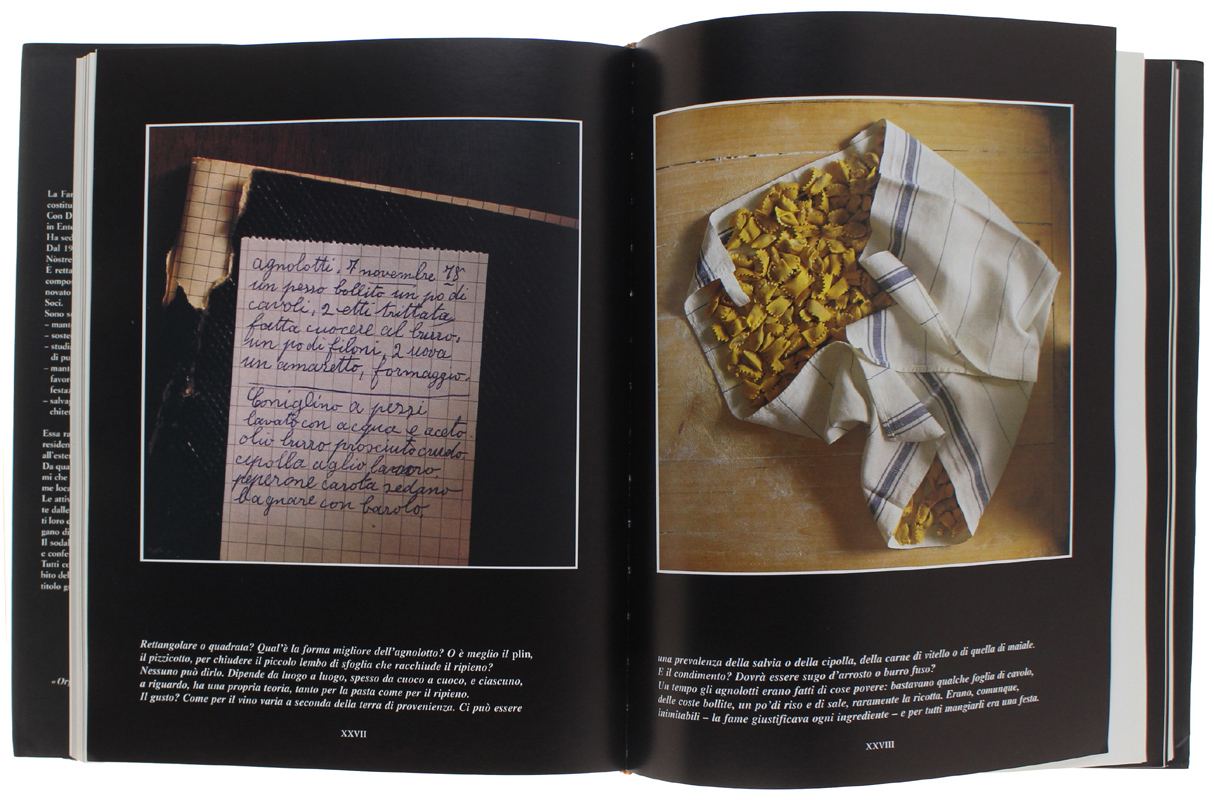 La Far
costitu
Con D
in Ente
Ha sed
Dal 19
Nòstre
È retta
compo
novato
Soci.
Sono s
– mant
– soste
– studia
di pu
– mant
favor
festa
– salva
chitet
Essa ra
residen
all'este
Da qua
mi che
me loca
Le attiv
te dalle
ti loro e
gano di
Il sodal
e confe
Tutti co
bito del
titolo g
«Or
agnolotti, 7 novembre 78
un pesso bollito un po di
cavoli, 2 etti trittata
fatta cuocere al burro,
un po di filoni, 2 uova
un amaretto, formaggio.
Coniglino a pezzi
lavato con acqua e aceto
olio burro prosciuto crudo
cipolla aglio
peperone carota sedano
bagnare con barolo
Rettangolare o quadrata? Qual'è la forma migliore dell'agnolotto? O è meglio il plin,
il pizzicotto, per chiudere il piccolo lembo di sfoglia che racchiude il ripieno?
Nessuno può dirlo. Dipende da luogo a luogo, spesso da cuoco a cuoco, e ciascuno,
a riguardo, ha una propria teoria, tanto per la pasta come per il ripieno.
Il gusto? Come per il vino varia a seconda della terra di provenienza. Ci può essere
XXVII
una prevalenza della salvia o della cipolla, della carne di vitello o di quella di maiale.
E il condimento? Dovrà essere sugo d'arrosto o burro fuso?
Un tempo gli agnolotti erano fatti di cose povere: bastavano qualche foglia di cavolo,
delle coste bollite, un po'di riso e di sale, raramente la ricotta. Erano, comunque,
inimitabili – la fame giustificava ogni ingrediente – e per tutti mangiarli era una festa.
XXVIII